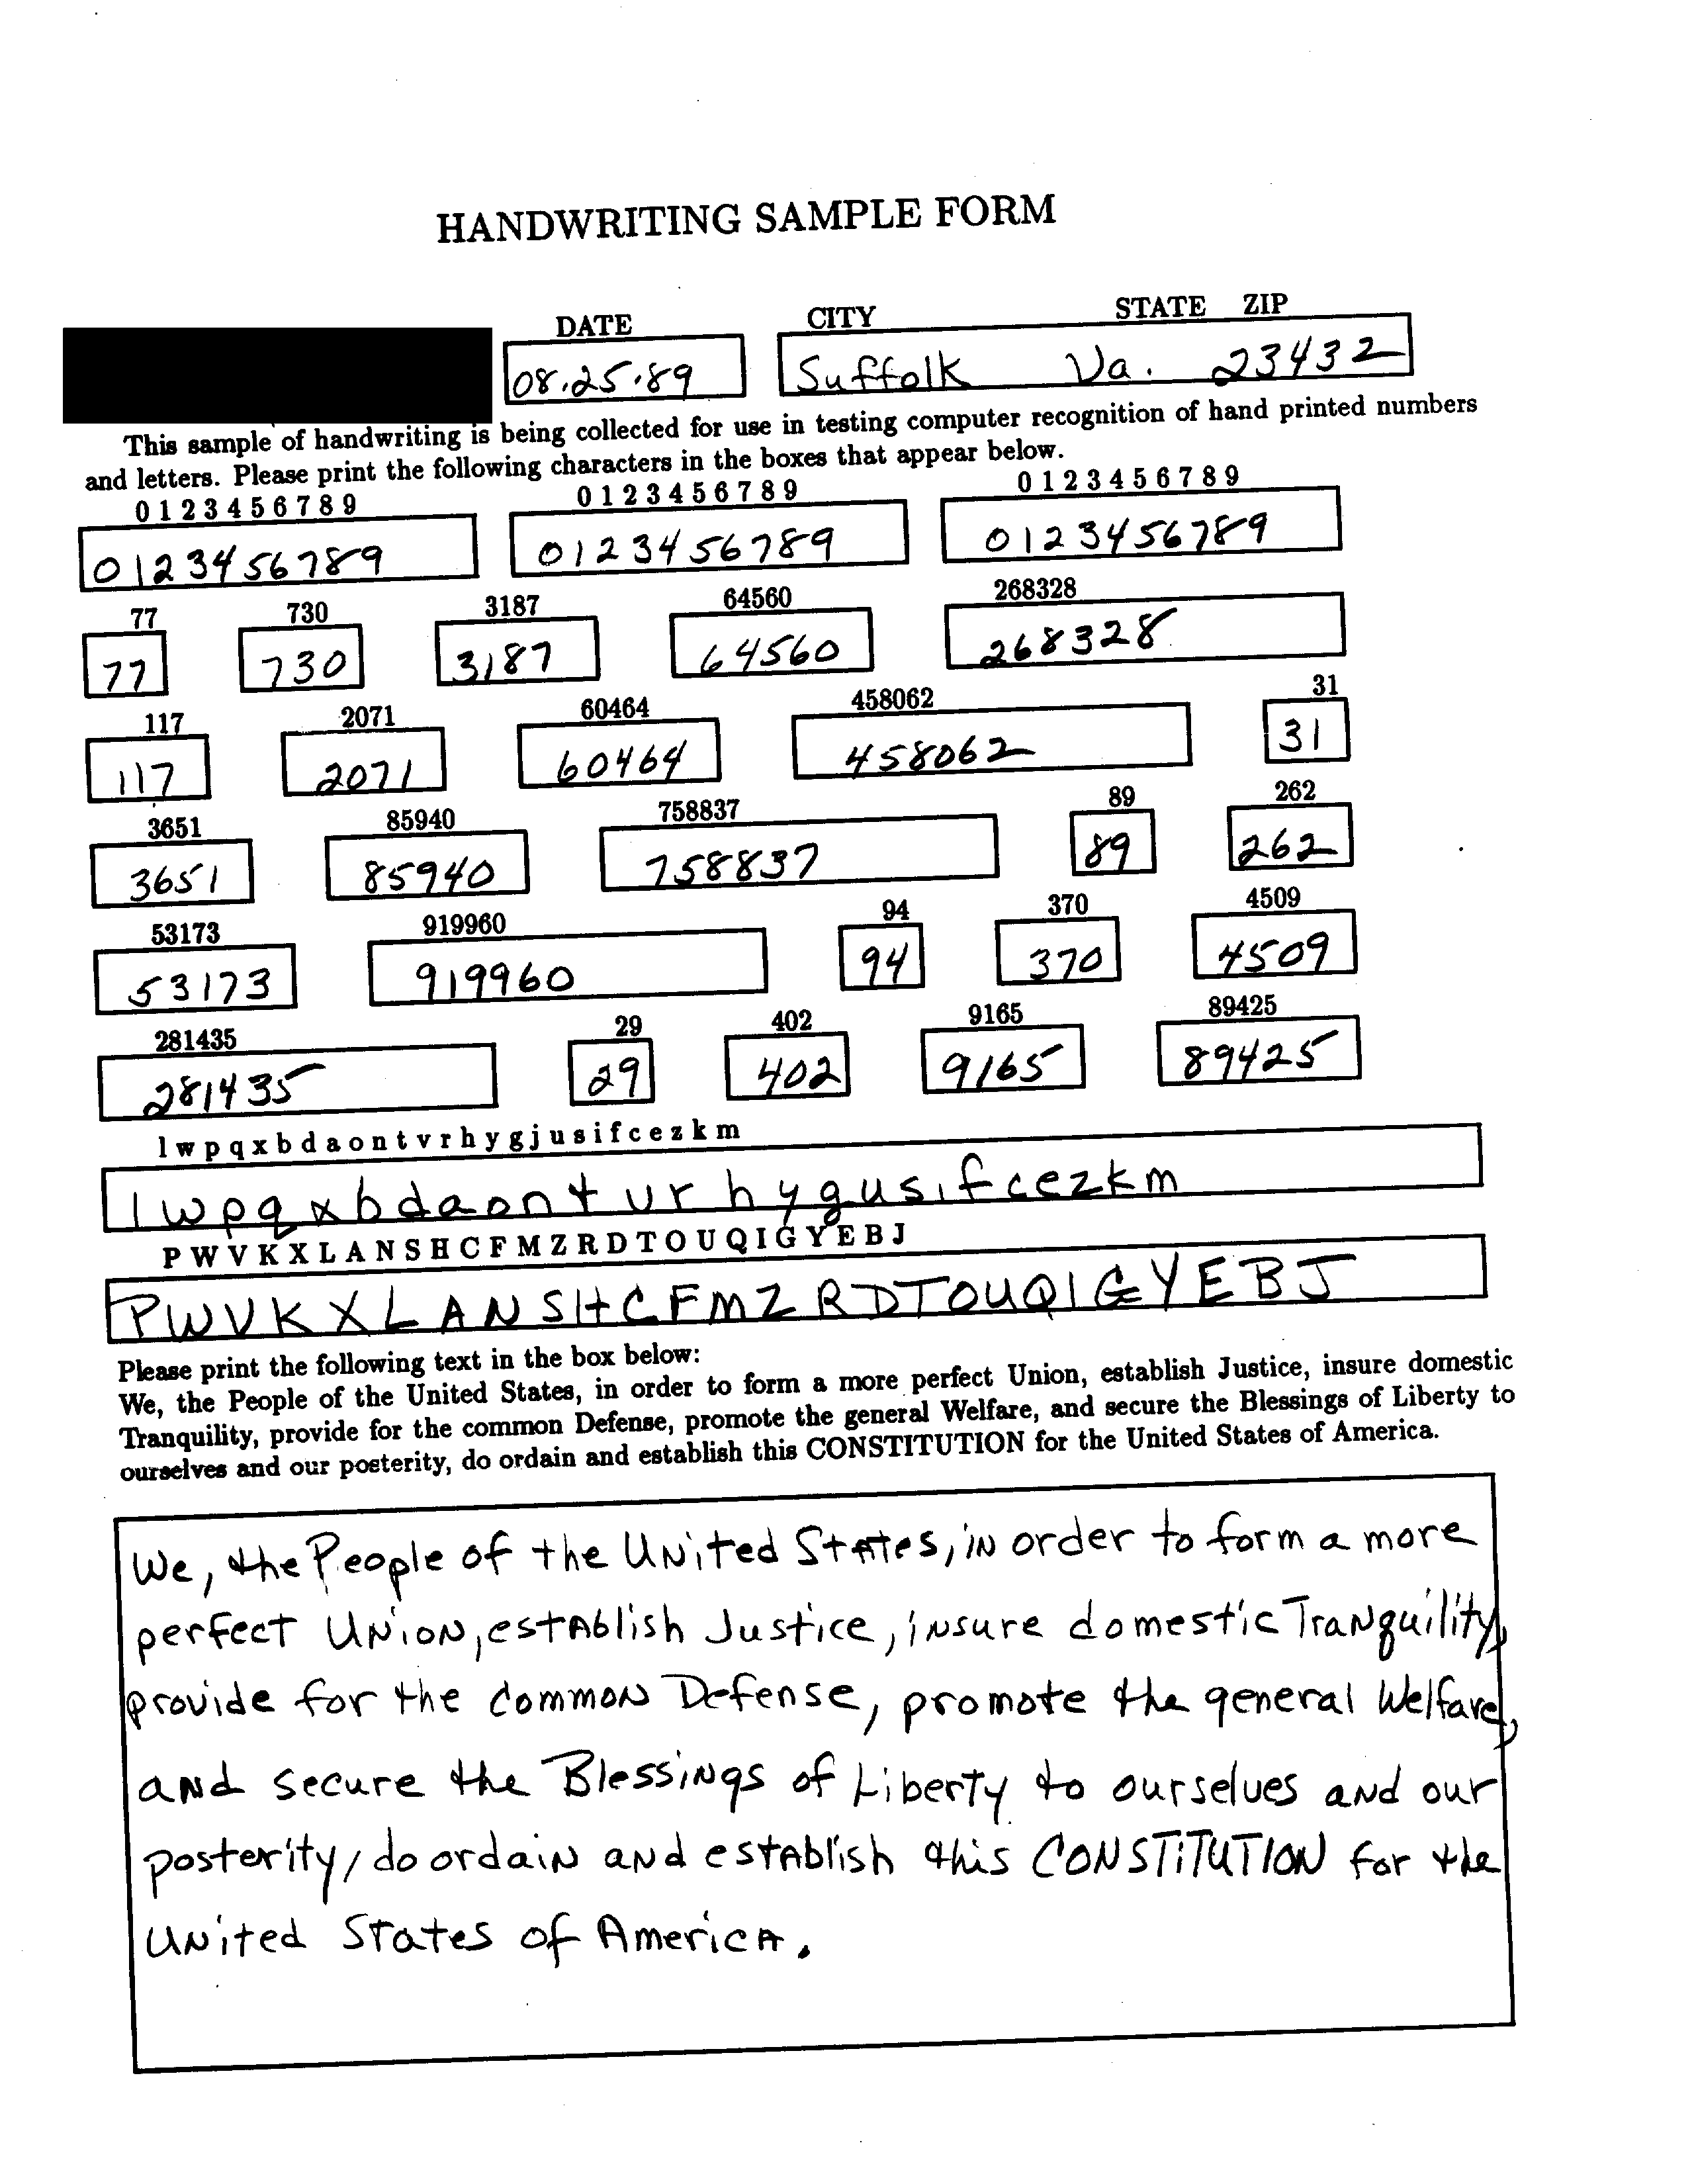 HANDWRITING SAMPLE FORM
DATE CITY STATE ZIP
08.25.89 Suffolk Va. 23432
This sample of handwriting is being collected for use in testing computer recognition of hand printed numbers
and letters. Please print the following characters in the boxes that appear below.
0 1 2 3 4 5 6 7 8 9 0 1 2 3 4 5 6 7 8 9 0 1 2 3 4 5 6 7 8 9
0123456789 0123456789 0123456789
77 730 3187 64560 268328
77 730 3187 64560 268328
117 2071 60464 458062 31
117 2071 60464 458062 31
3651 85940 758837 89 262
3651 85940 758837 89 262
53173 919960 94 370 4509
53173 919960 94 370 4509
281435 29 402 9165 89425
281435 29 402 9165 89425
l w p q x b d a o n t v r h y g j u s i f c e z k m
l w p q x b d a o n t v r h y g u s i f c e z k m
P W V K X L A N S H C F M Z R D T O U Q I G Y E B J
P W V K X L A N S H C F M Z R D T O U Q I G Y E B J
Please print the following text in the box below:
We, the People of the United States, in order to form a more perfect Union, establish Justice, insure domestic
Tranquility, provide for the common Defense, promote the general Welfare, and secure the Blessings of Liberty to
ourselves and our posterity, do ordain and establish this CONSTITUTION for the United States of America.
We, the People of the United States, in order to form a more
perfect Union, establish Justice, insure domestic Tranquility,
provide for the common Defense, promote the general Welfare,
and secure the Blessings of Liberty to ourselves and our
posterity, do ordain and establish this CONSTITUTION for the
United States of America.